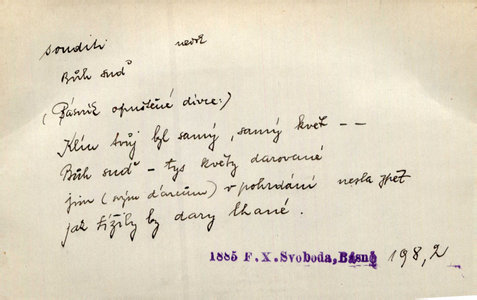 souditi
Bůh suď
(Básník opuštěné dívce:)
Klín tvůj byl samý, samý květ --
Bůh suď – tys květy darované
jim (svým dárcům) v pohrdání nesla zpět
jak tížily by dary lhané.
1885 F.X.Svoboda, Básně 198,2